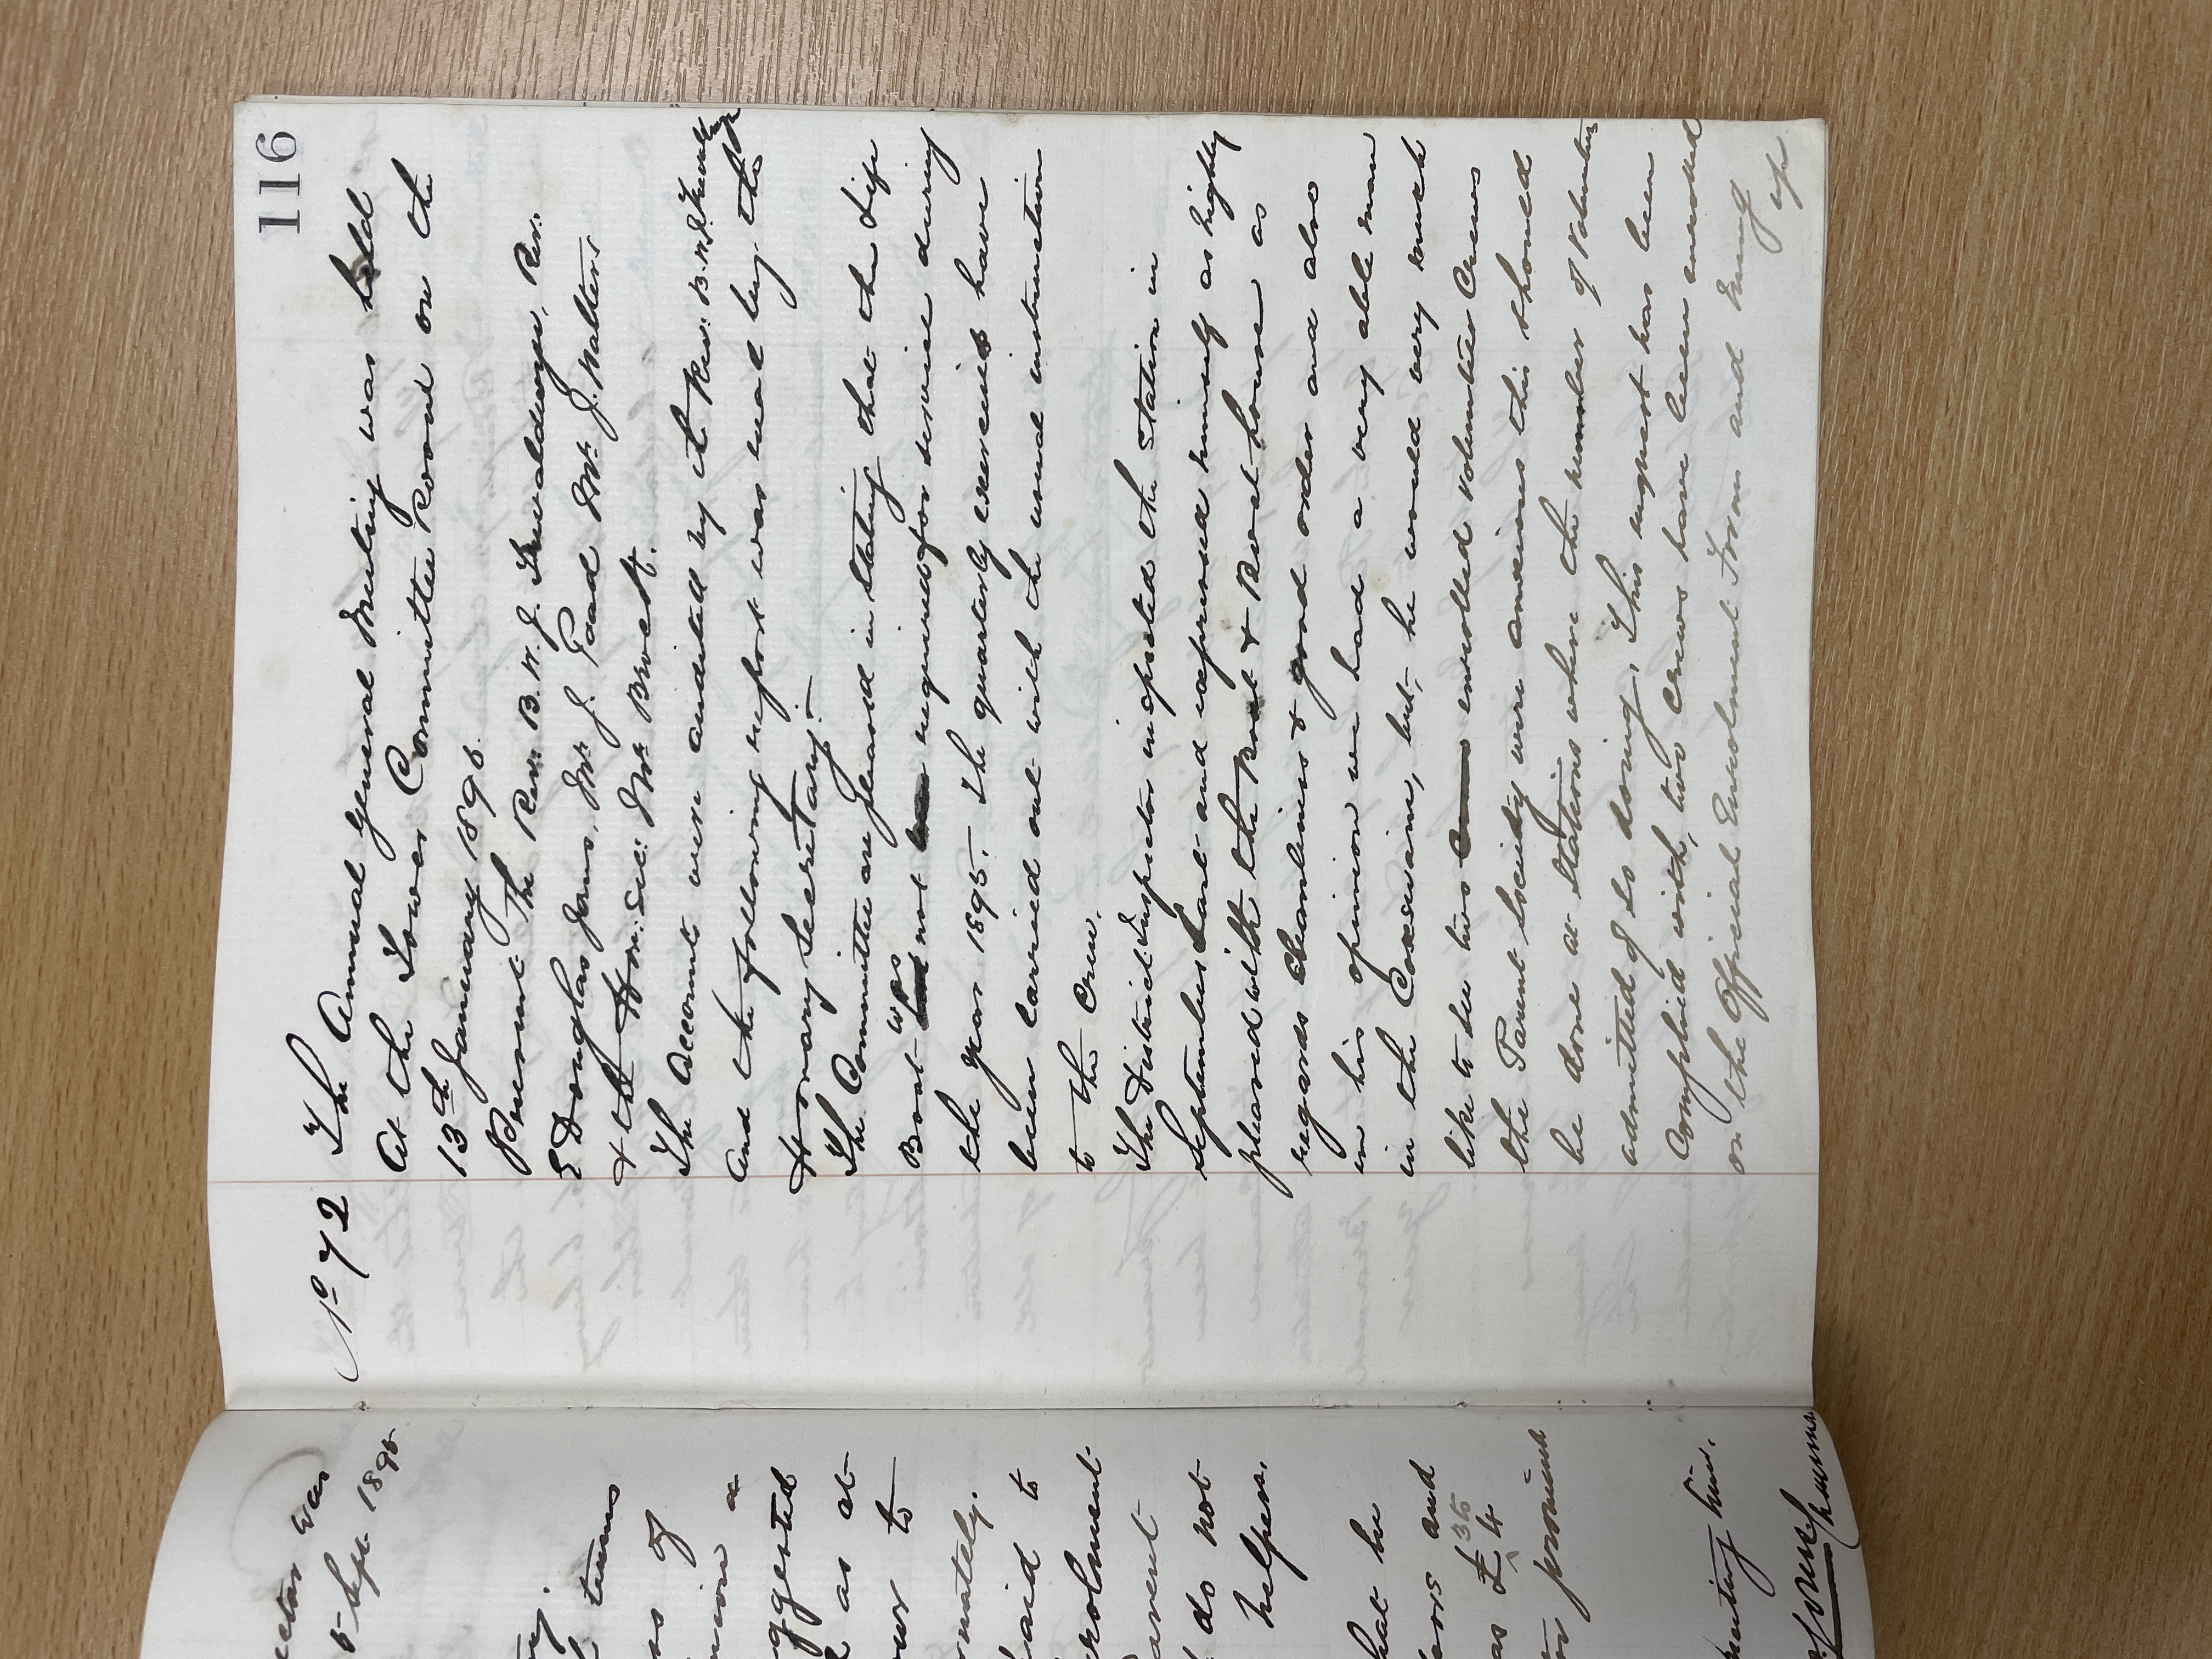 116
No 72 The Annual General Meeting was held
at the Tower Committee Room on the
13th January 1896.
Present The Rev: B. W. J. Trevaldwyn, Rev.
E Douglas Jones, Mr J. Pead Mr J. Walters
& the Hon: Sec: Mr Brock.
The Accounts were audited by the Rev: B. W. J. Trevaldwyn
and the following report was read by the
Honorary Secretary:-
The Committee are pleased in stating that the Life
Boat was not required for service during
the year 1895. The quarterly exercises have
been carried out with the usual instruction
to the Crew.
The District Inspector inspected the Station in
September last and expressed himself as highly
pleased with the Boat & Boat house as
regards cleanliness & good order and also
in his opinion we had a very able man
in the Coxswain, but, he would very much
like to see two enrolled volunteer Crews
the Parent Society were anxious this should
be done at Stations where the number of Volunteers
admitted of so doing, This request has been
Complied with, two Crews have been enrolled
on the Official Enrolment Form and hung
up
was
5 Sept 1895
turns
of
a
as at
to
to
do not
helpers.
that he
and
as £4